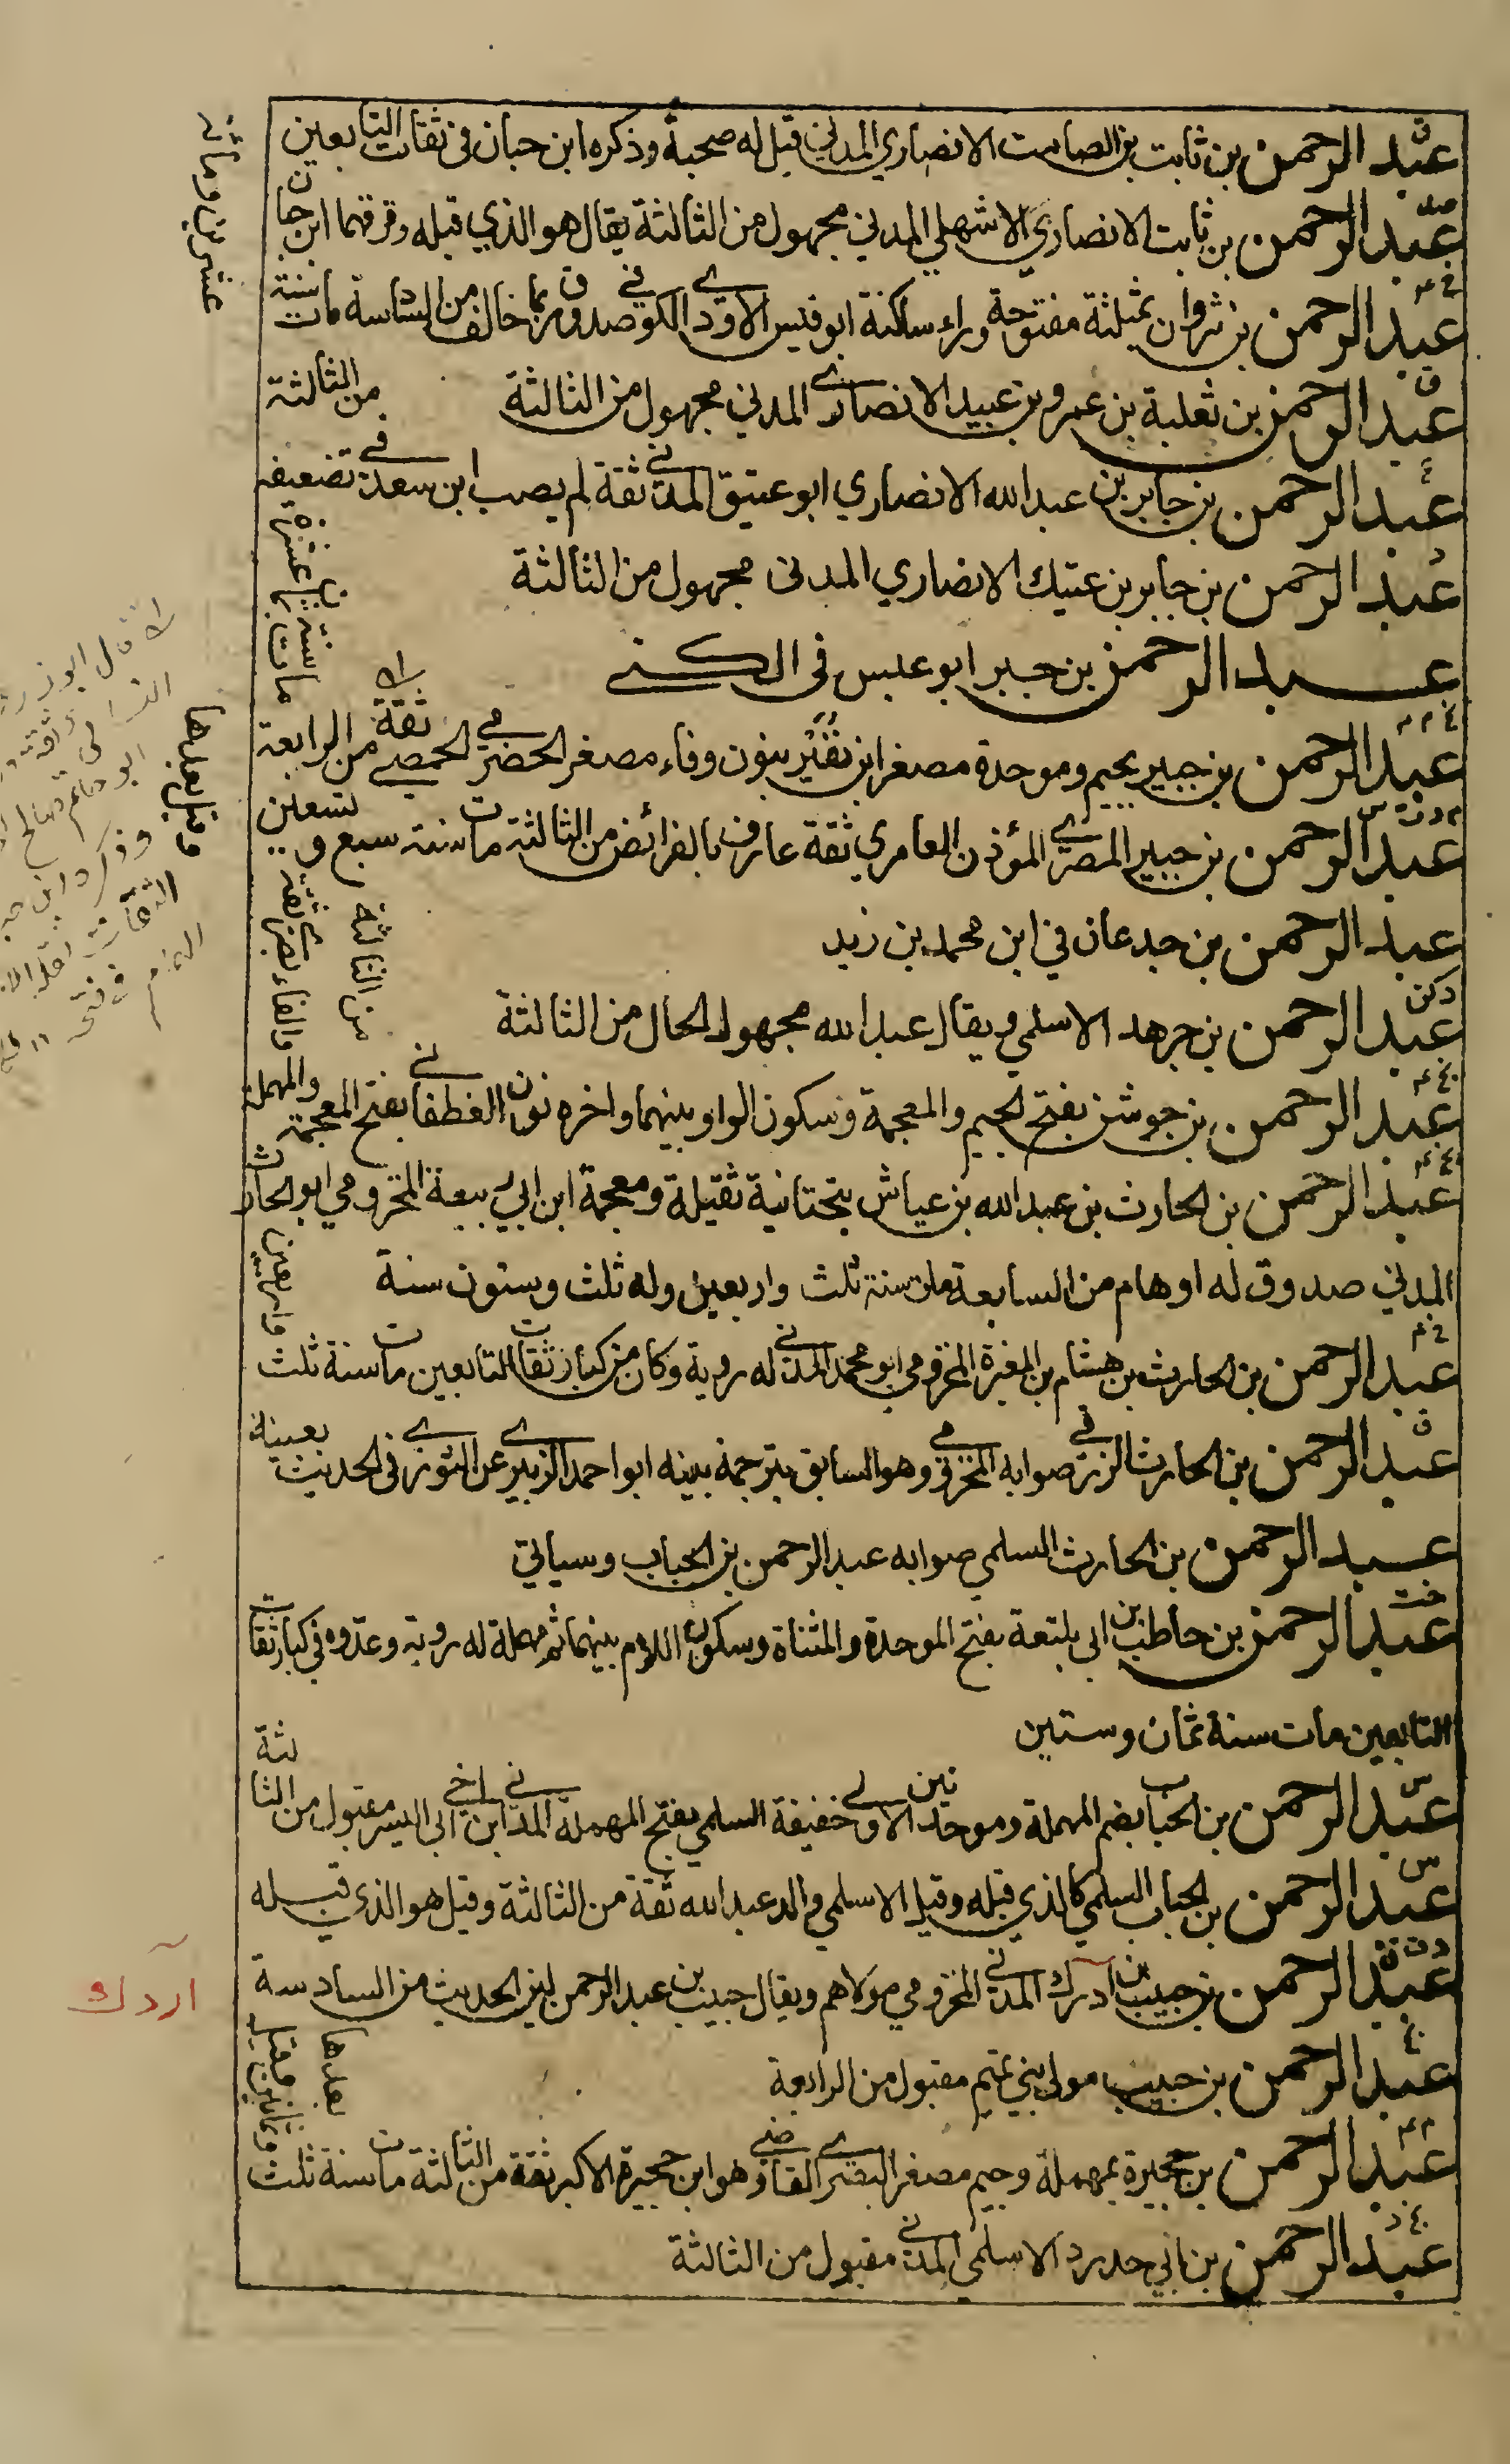 ق
عبد الرحمن بن ثابت بن الصامت الانصاري المدني قيل له صحبة وذكره ابن حبان في ثقات التابعين
صد
عبد الرحمن بن ثابت الانصاري الاشهلي المدني مجهول من الثالثة يقال هو الذي قبله وفرقهما ابن حبان
خ ٤
عبد الرحمن بن ثروان بمثلثة مفتوحة وراء ساكنة ابو قيس الاودي الكوفي صدوق ربما خالف من السادسة مات سنة
عشرين ومائة
ق
عبد الرحمن بن ثعلبة بن عمرو بن عبيد الانصاري المدني مجهول من الثالثة
ع
عبد الرحمن بن جابر بن عبد الله الانصاري ابو عتيق المدني ثقة لم يصب ابن سعد في تضعيفه
من الثالثة
د
عبد الرحمن بن جابر بن عتيك الانصاري المدني مجهول من الثالثة
عبد الرحمن بن جبر ابو عبس في الكنى
عبد الرحمن بن جبير بجيم وموحدة مصغر ابن نفير بنون وفاء مصغر الحضرمي الحمصي ثقة من الرابعة
مات سنة ثماني عشرة
م د ت س
عبد الرحمن بن جبير المصري المؤذن العامري ثقة عارف بالفرائض من الثالثة مات سنة سبع وتسعين
وقيل بعدها
عبد الرحمن بن جدعان في ابن محمد بن زيد
د كن
عبد الرحمن بن جرهد الاسلمي ويقال عبد الله مجهول الحال من الثالثة
عبد الرحمن بن جوشن بفتح الجيم والمعجمة وسكون الواو بينهما واخره نون الغطفاني بفتح المعجمة والمهملة
والفاء بصري ثقة
من الثالثة
عبد الرحمن بن الحارث بن عبد الله بن عياش بتحتانية ثقيلة ومعجمة ابن ابي ربيعة المخزومي ابو الحارث
المدني صدوق له اوهام من السابعة مات سنة ثلث واربعين وله ثلث وستون سنة
خ ٤
عبد الرحمن بن الحارث بن هشام بن المغيرة المخزومي ابو محمد المدني له روية وكان من كبار ثقات التابعين مات سنة ثلث
واربعين
ق
عبد الرحمن بن الحارث الزرقي صوابه المخزومي وهو السابق بترجمة بينه ابو احمد الزبيري عن الثوري في الحديث بعينه
عبد الرحمن بن الحارث السلمي صوابه عبد الرحمن بن الحباب وسياتي
خت
عبد الرحمن بن حاطب بن ابي بلتعة بفتح الموحدة والمثناة وسكون اللام بينهما ثم مهملة له روية وعدوه في كبار ثقات
التابعين مات سنة ثمان وستين
س
عبد الرحمن بن الحباب بضم المهملة وموحدتين الاولى خفيفة السلمي بفتح المهملة المدني ابن اخي ابي اليسر مقبول من الثالثة
س
عبد الرحمن بن الحباب السلمي كالذي قبله وقيل الاسلمي والد عبد الله ثقة من الثالثة وقيل هو الذي قبله
د ت ق
عبد الرحمن بن حبيب بن أردك المدني المخزومي مولاهم ويقال حبيب بن عبد الرحمن لين الحديث من السادسة
أردك
عبد الرحمن بن حبيب مولى بني تميم مقبول من الرابعة
م ٤
عبد الرحمن بن حجيرة بمهملة وجيم مصغر البصري القاضي وهو ابن حجيرة الاكبر ثقة من الثالثة مات سنة ثلث
وثمانين وقيل
بعدها
عبد الرحمن بن ابي حدرد الاسلمي المدني مقبول من الثالثة